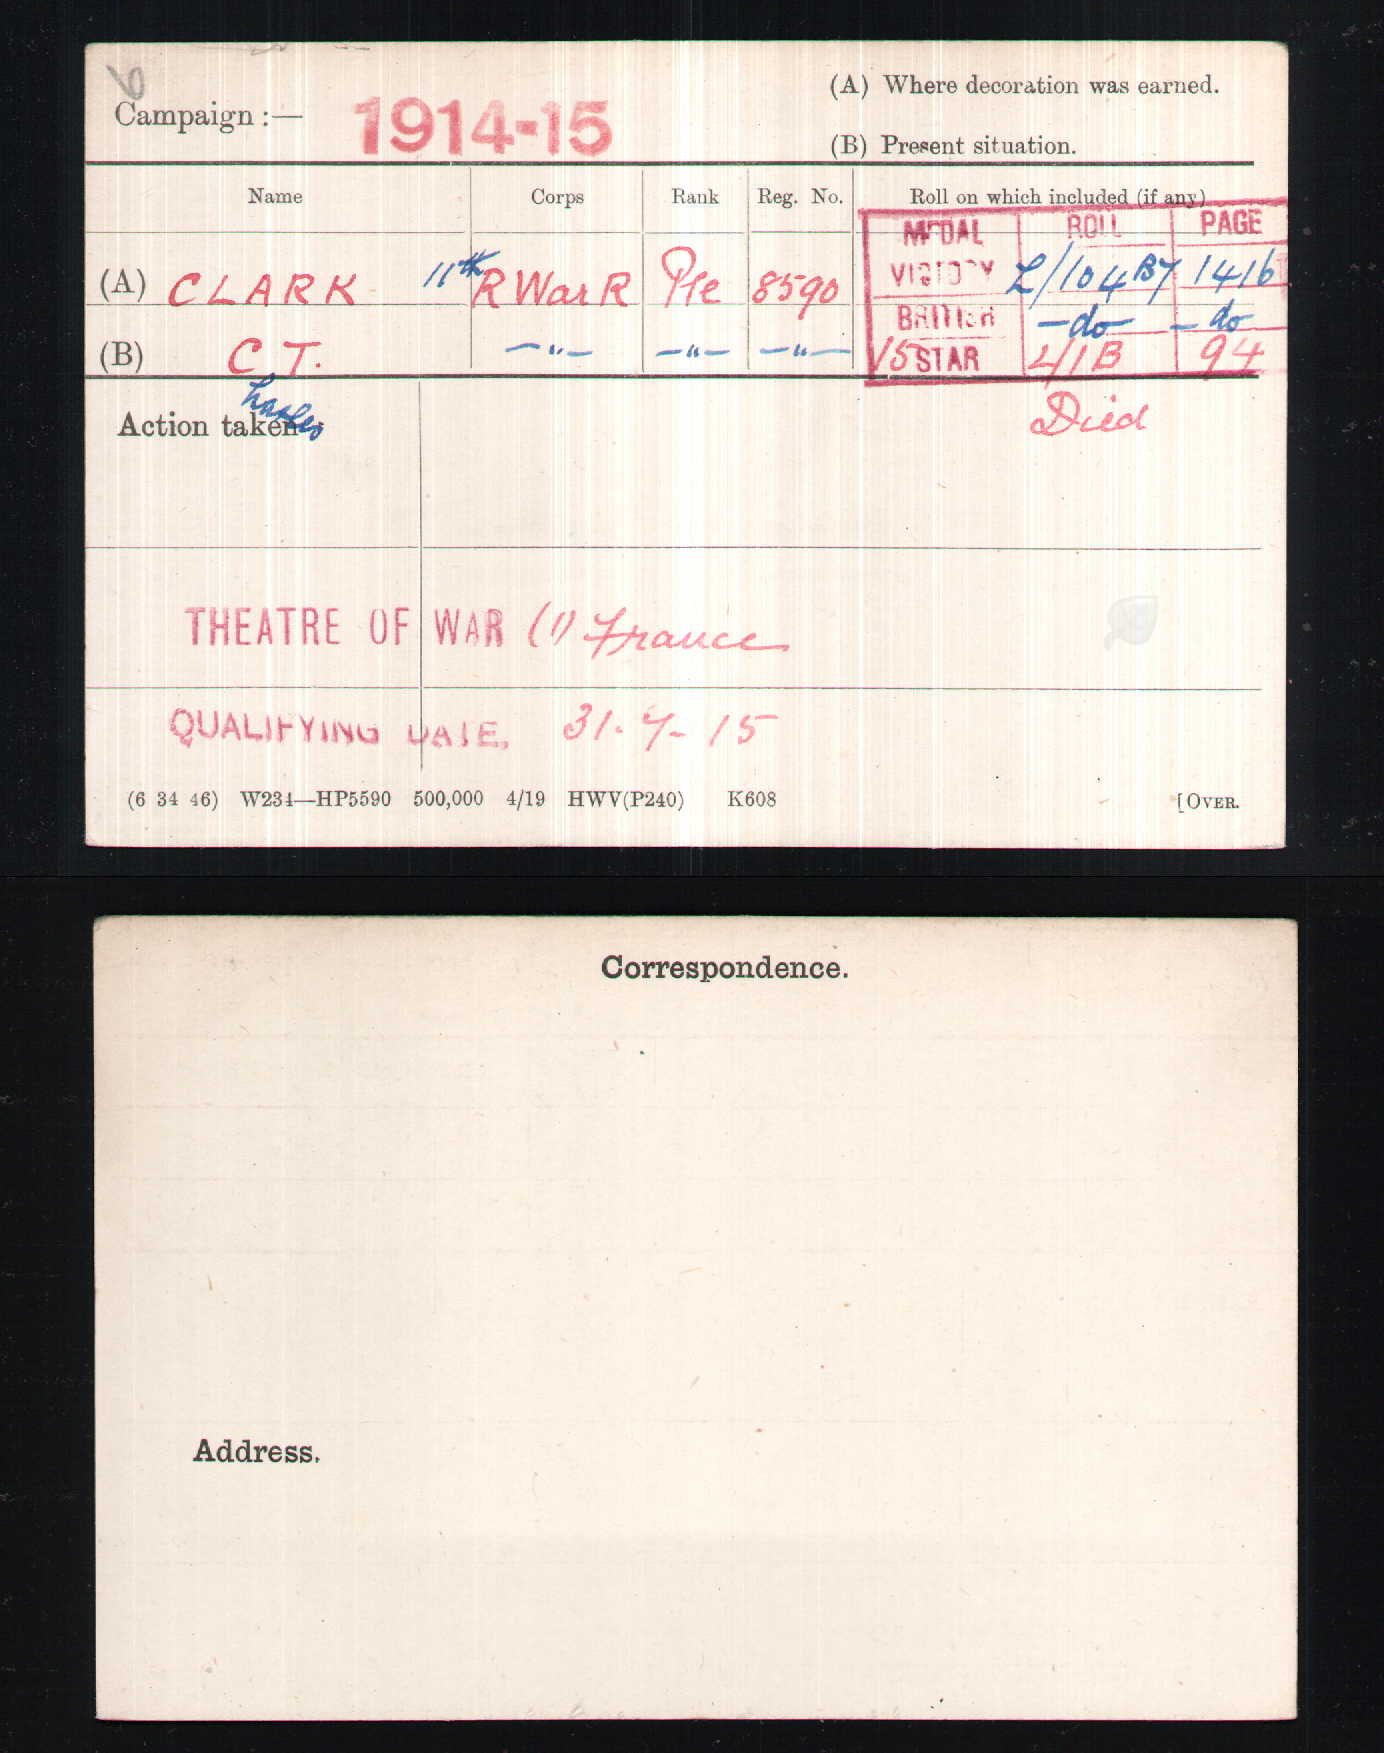 Campaign :— 1914-15
(A) Where decoration was earned.
(B) Present situation.
Name Corps Rank Reg. No. Roll on which included (if any)
MEDAL ROLL PAGE
(A) CLARK 11th R War R Pte 8590 VICTORY L/104 B7 1416
BRITISH —do— —do
(B) C T. —"— —"— —"— 15 STAR 4/1B 94
Charles
Action taken : Died
THEATRE OF WAR (1) France
QUALIFYING DATE. 31. 7. 15
(6 34 46) W234—HP5590 500,000 4/19 HWV(P240) K608 [OVER.
Correspondence.
Address.